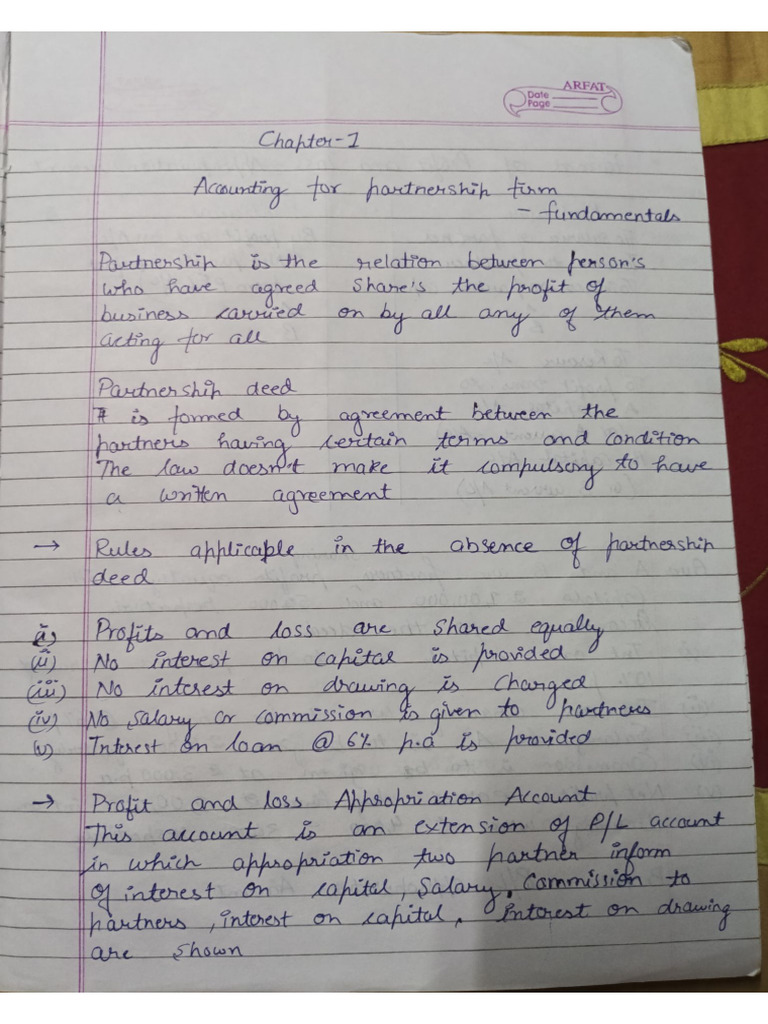 ARFAT
Date
Page
Chapter-1
Accounting for partnership firm
- fundamentals
Partnership is the relation between person's
who have agreed share's the profit of
business carried on by all any of them
acting for all
Partnership deed
It is formed by agreement between the
partners having certain terms and condition
The law doesn't make it compulsory to have
a written agreement
→ Rules applicable in the absence of partnership
deed
(i) Profits and loss are shared equally
(ii) No interest on capital is provided
(iii) No interest on drawing is charged
(iv) No salary or commission is given to partners
(v) Interest on loan @ 6% p.a is provided
→ Profit and loss Appropriation Account
This account is an extension of P/L account
in which appropriation two partner inform
of interest on capital, salary, commission to
partners, interest on capital, Interest on drawing
are shown